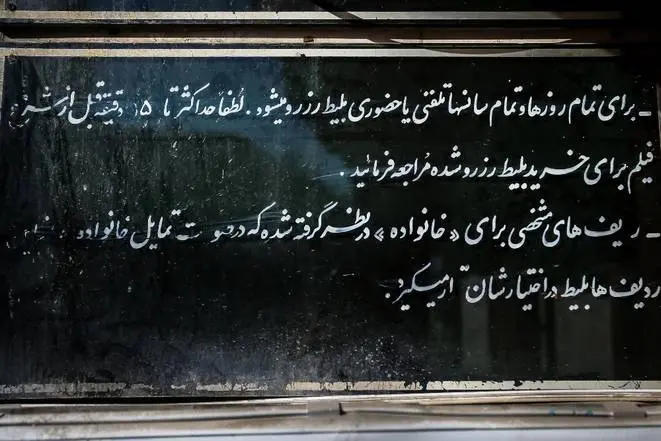 ـ برای تمام روزها و تمام سانسها تلفنی یا حضوری بلیط رزرو میشود . لطفاً حداکثر تا ۱۵ دقیقه قبل از
فیلم برای خرید بلیط رزرو شده مراجعه فرمائید .
ـ ردیف های مشخصی برای «خانواده» در نظر گرفته شده که در تمایل خانواده
ردیف ها بلیط در اختیارشان میگیرد .